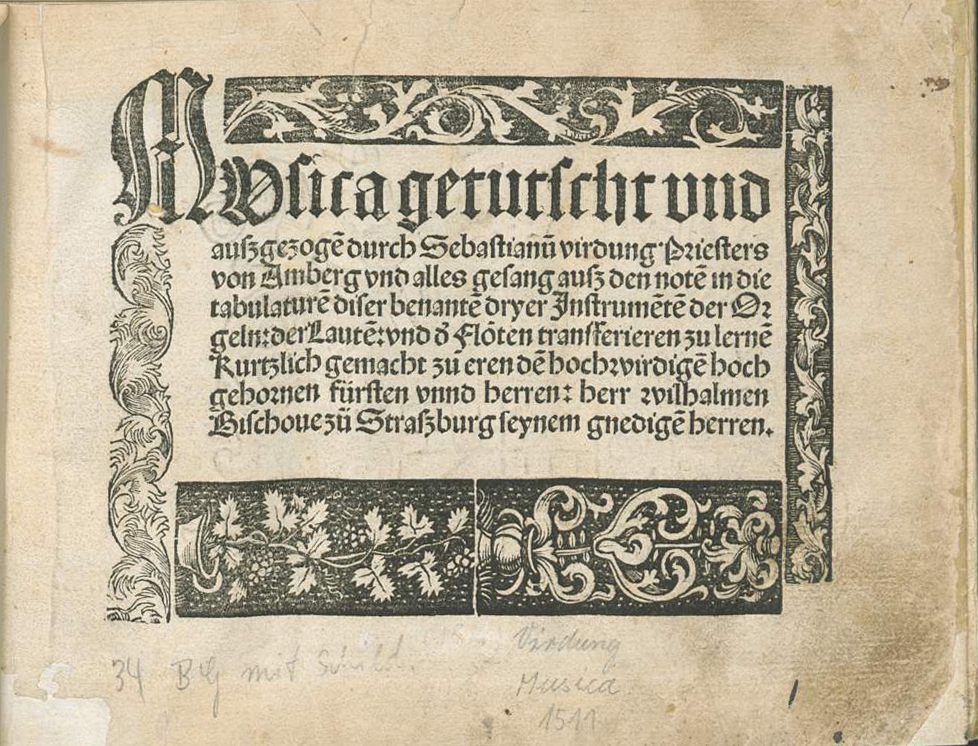 Musica getutscht und
auszgezogē durch Sebastianū virdung Priesters
von Amberg vnd alles gesang ausz den notē in die
tabulaturē diser benantē dryer Instrumētē der Or
geln: der Lautē: vnd d̄ Flöten transferieren zu lernē
Kurtzlich gemacht zū eren dē hochwirdigē hoch
gebornen fürsten vnnd herren: herr wilhalmen
Bischoue zū Straszburg seynem gnedigē herren.
34 Bll mit
Virdung
Musica
1511